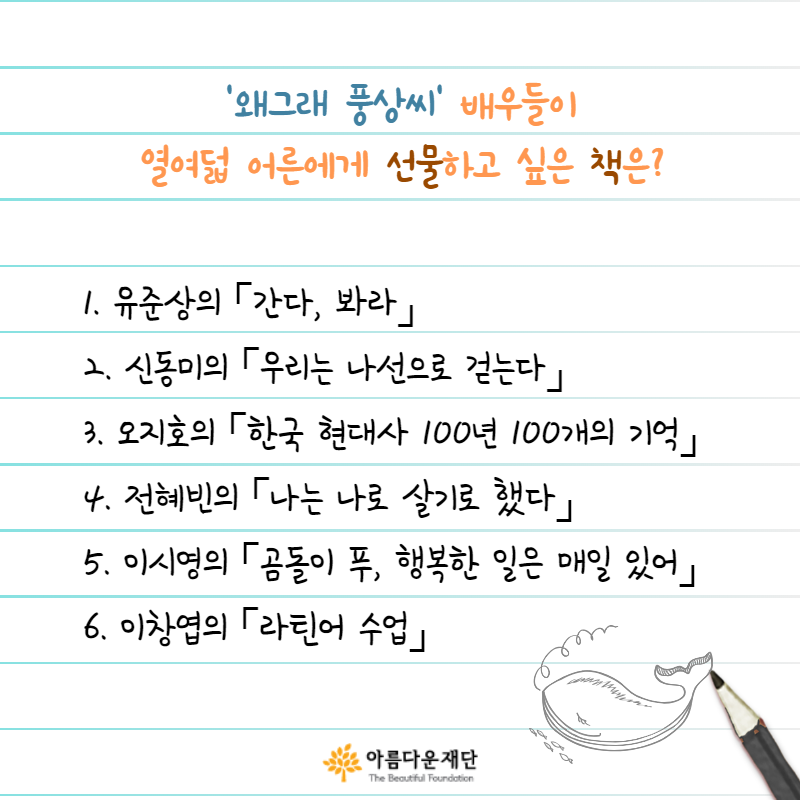 '왜그래 풍상씨' 배우들이
열여덟 어른에게 선물하고 싶은 책은?
1. 유준상의 「간다, 봐라」
2. 신동미의 「우리는 나선으로 걷는다」
3. 오지호의 「한국 현대사 100년 100개의 기억」
4. 전혜빈의 「나는 나로 살기로 했다」
5. 이시영의 「곰돌이 푸, 행복한 일은 매일 있어」
6. 이창엽의 「라틴어 수업」
아름다운재단
The Beautiful Foundation